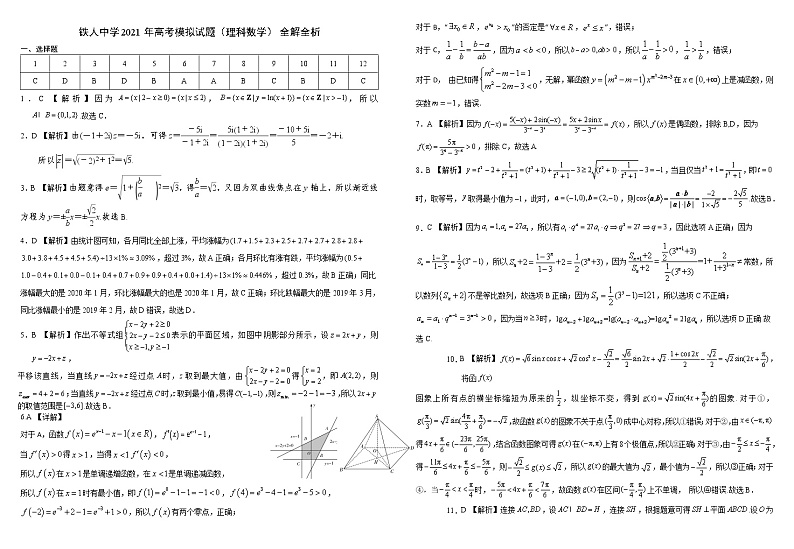 铁人中学2021 年高考模拟试题（理科数学） 全解全析
一、选择题
1 2 3 4 5 6 7 8 9 10 11 12
C D B D B A A B C B D C
1．C 【解析】因为 A={x|2-x≥0}={x|x≤2}，B={x∈Z|y=ln(x+1)}={x∈Z|x>-1}，所以
A∩B={0,1,2}.故选C.
2．D 【解析】由(-1+2i)z=-5i，可得z=-5i/(-1+2i)=5i(1+2i)/((1-2i)(1+2i))=(-10+5i)/5=-2+i.
所以|z|=√((-2)²+1²)=√5.
3．B 【解析】由题意得e=√(1+(b/a)²)=√3，得b/a=√2，又因为双曲线焦点在y轴上，所以渐近线
方程为y=±(a/b)x=±(√2/2)x.故选B.
4．D 【解析】由统计图可知，各月同比全部上涨，平均涨幅为(1.7+1.5+2.3+2.5+2.7+2.7+2.8+2.8+
3.0+3.8+4.5+4.5+5.4)÷13×1%≈3.09%，超过3%，故A正确；各月环比有涨有跌，平均涨幅为(0.5+
1.0-0.4+0.1+0.0-0.1+0.4+0.7+0.9+0.9+0.4+0.0+1.4)÷13×1%≈0.446%，超过0.3%，故B正确；同比
涨幅最大的是2020年1月，环比涨幅最大的也是2020年1月，故C正确；环比跌幅最大的是2019年3月，
同比涨幅最小的是2019年2月，故D错误，故选D.
5，B 【解析】作出不等式组{x-2y+2≥0 2x-y-2≤0 x≥-1,y≥-1表示的平面区域，如图中阴影部分所示，设z=2x+y，则
y=-2x+z，
平移该直线，当直线y=-2x+z经过点A时，z取到最大值，由{x-2y+2=0 2x-y-2=0得{x=2 y=2，即A(2,2)，则
zmax=4+2=6；当直线y=-2x+z经过点C时，z取到最小值，易得C(-1,-1)，则zmin=-2-1=-3，所以2x+y
的取值范围是[-3,6].故选B.
6.A 【详解】
对于A，函数f(x)=e^(x-1)-x-1(x∈R)，f'(x)=e^(x-1)-1，
当f'(x)>0得x>1，当得x<1f'(x)<0，
所以f(x)在x>1是单调递增函数，在x<1是单调递减函数，
所以f(x)在x=1时有最小值，即f(1)=e⁰-1-1=-1<0，f(4)=e³-4-1=e³-5>0，
f(-2)=e⁻³+2-1=e⁻³+1>0，所以f(x)有两个零点，正确；
对于B，“∃x₀∈R，e^(x₀)>x₀”的否定是“∀x∈R，eˣ≤x”，错误；
对于C，1/a-1/b=(b-a)/ab，因为a<b<0，所以b-a>0,ab>0，所以1/a-1/b>0，1/a>1/b，错误；
对于D， 由已知得{m²-m-1=1 m²-2m-3<0，无解，幂函数y=(m²-m-1)x^(m²-2m-3)在x∈(0,+∞)上是减函数，则
实数m=-1，错误.
7．A 【解析】因为f(-x)=(5(-x)+2sin(-x))/(3⁻ˣ-3ˣ)=(5x+2sinx)/(3ˣ-3⁻ˣ)=f(x)，所以f(x)是偶函数，排除B,D，因为
f(π)=5π/(3^π-3^(-π))>0，排除C，故选A
8．B 【解析】y=t²-2+1/(t²+1)=(t²+1)+1/(t²+1)-3≥2√((t²+1)·1/(t²+1))-3=-1，当且仅当t²+1=1/(t²+1)，即t=0
时，取等号，y取得最小值为-1，此时，a=(-1,0),b=(2,-1)，则cos⟨a,b⟩=a·b/(|a|·|b|)=-2/(1×√5)=-2√5/5.故选B.
9．C 【解析】因为a₁=1,a₄=27a₁，所以有a₁·q³=27a₁·q⇒q³=27⇒q=3，因此选项A正确；因为
Sₙ=(1-3ⁿ)/(1-3)=1/2(3ⁿ-1)，所以Sₙ+2=(1-3ⁿ)/(1-3)+2=1/2(3ⁿ+3)，因为(Sₙ₊₁+2)/(Sₙ+2)=(1/2(3ⁿ⁺¹+3))/(1/2(3ⁿ+3))=1+2/(1+3^(1-n))≠常数，所
以数列{Sₙ+2}不是等比数列，故选项B正确；因为S₅=1/2(3⁵-1)=121，所以选项C不正确；
aₙ=a₁·qⁿ⁻¹=3ⁿ⁻¹>0，因为当n≥3时，lgaₙ₋₂+lgaₙ₊₂=lg(aₙ₋₂·aₙ₊₂)=lgaₙ²=2lgaₙ，所以选项D正确.故
选C.
10．B 【解析】f(x)=√6sinxcosx+√2cos²x-√2/2=√6/2sin2x+√2·(1+cos2x)/2-√2/2=√2sin(2x+π/6)，
将函f(x)
图象上所有点的横坐标缩短为原来的1/2，纵坐标不变，得到g(x)=√2sin(4x+π/6)的图象.对于①，
g(π/3)=√2sin(4π/3+π/6)=-√2，故函数g(x)的图象不关于点(π/3,0)成中心对称，所以①错误；对于②，由x∈(-π,π)
得4x+π/6∈(-23π/6,25π/6)，结合函数图象可得g(x)在(-π,π)上有8个极值点，所以②正确；对于③，由-π/2≤x≤-π/4，
得-11π/6≤4x+π/6≤-5π/6，则-√2/2≤g(x)≤√2，所以g(x)的最大值为√2，最小值为-√2/2，所以③正确；对于
④，当-π/4<x<π/4时，-5π/6<4x+π/6<7π/6，故函数g(x)在区间(-π/4,π/4)上不单调， 所以④错误.故选B.
11．D 【解析】连接AC,BD，设AC∩BD=H，连接SH，根据题意可得SH⊥平面ABCD.设O为